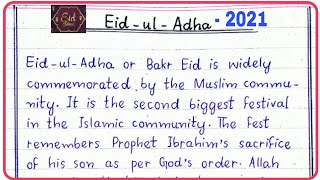 Eid
Eid-ul-Adha - 2021
Eid-ul-Adha or Bakr Eid is widely
commemorated by the Muslim commu-
nity. It is the second biggest festival
in the Islamic community. The fest
remembers Prophet Ibrahim's sacrifice
of his son as per God's order. Allah